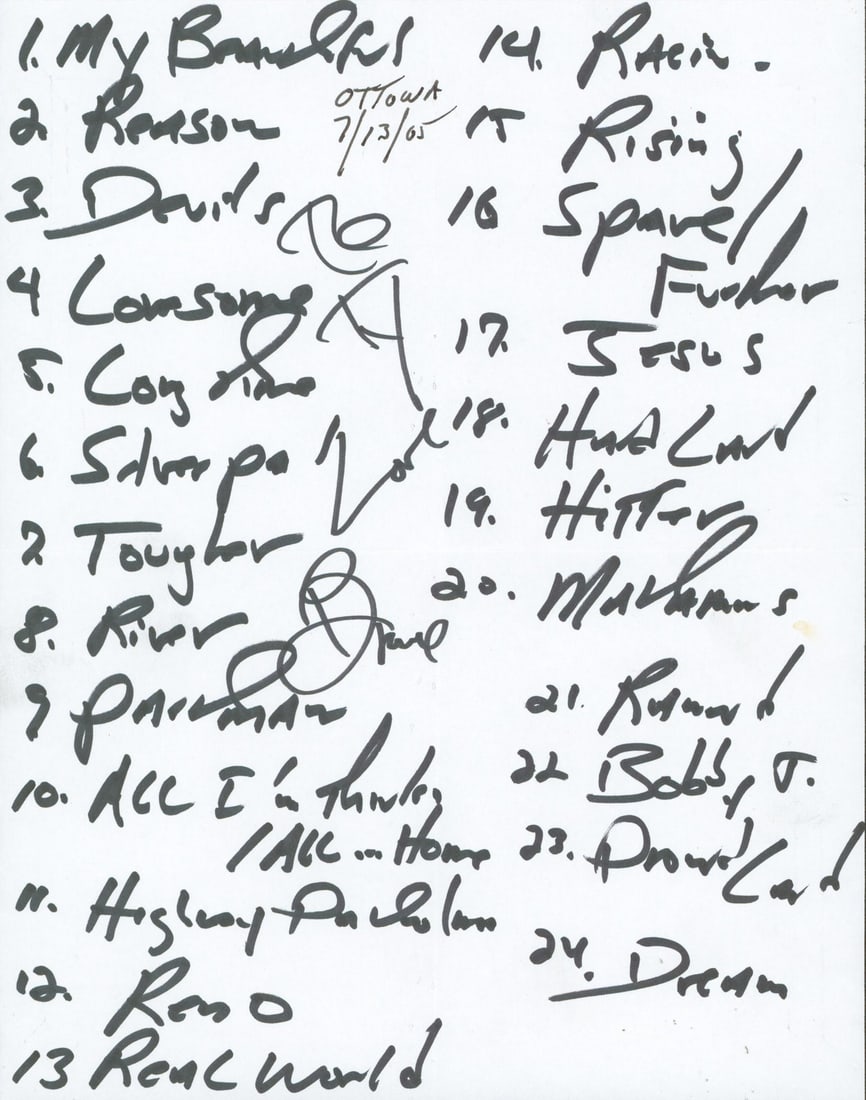 1. My Beautiful
OTTOWA
7/13/05
2. Reason
3. Devils
4 Lonesome
5. Long time
6. Silver pa
7. Tougher
8. River
9 PARAMAN
10. ALL I'm Thinkin
/ ALL in Home
11. Highway Patrolman
12. Reno
13 REAL World
14. Racin.
15 Rising
16 Spare /
Further
17. JESUS
18. HARD LAND
19. HiTTer
20. MATAMORAS
21. Ramrod
22 Bobby J.
23. Promised Land
24. Dream